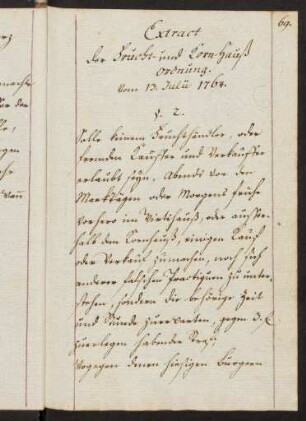 69.
Extract
der Frucht- und Korn-Hauß
ordnung.
Vom 13. Julii 1764.
§. 2.
Solle keinem Fruchthändler, oder
frembden Kauffer und Verkauffer
erlaubt seyn, Abends vor den
Marckttägen oder Morgens frühe
vorhero im Wirtshauß, oder ausser-
halb dem Kornhauß, einigen Kauf
oder Verkauf zumachen, noch sich
anderer falschen Practiquen zu unter-
stehen, sondern die behörige Zeit
und Stunde zuerwarten, gegen 3. £
zuerlegen habender
Wogegen denen hiesigen Burgern